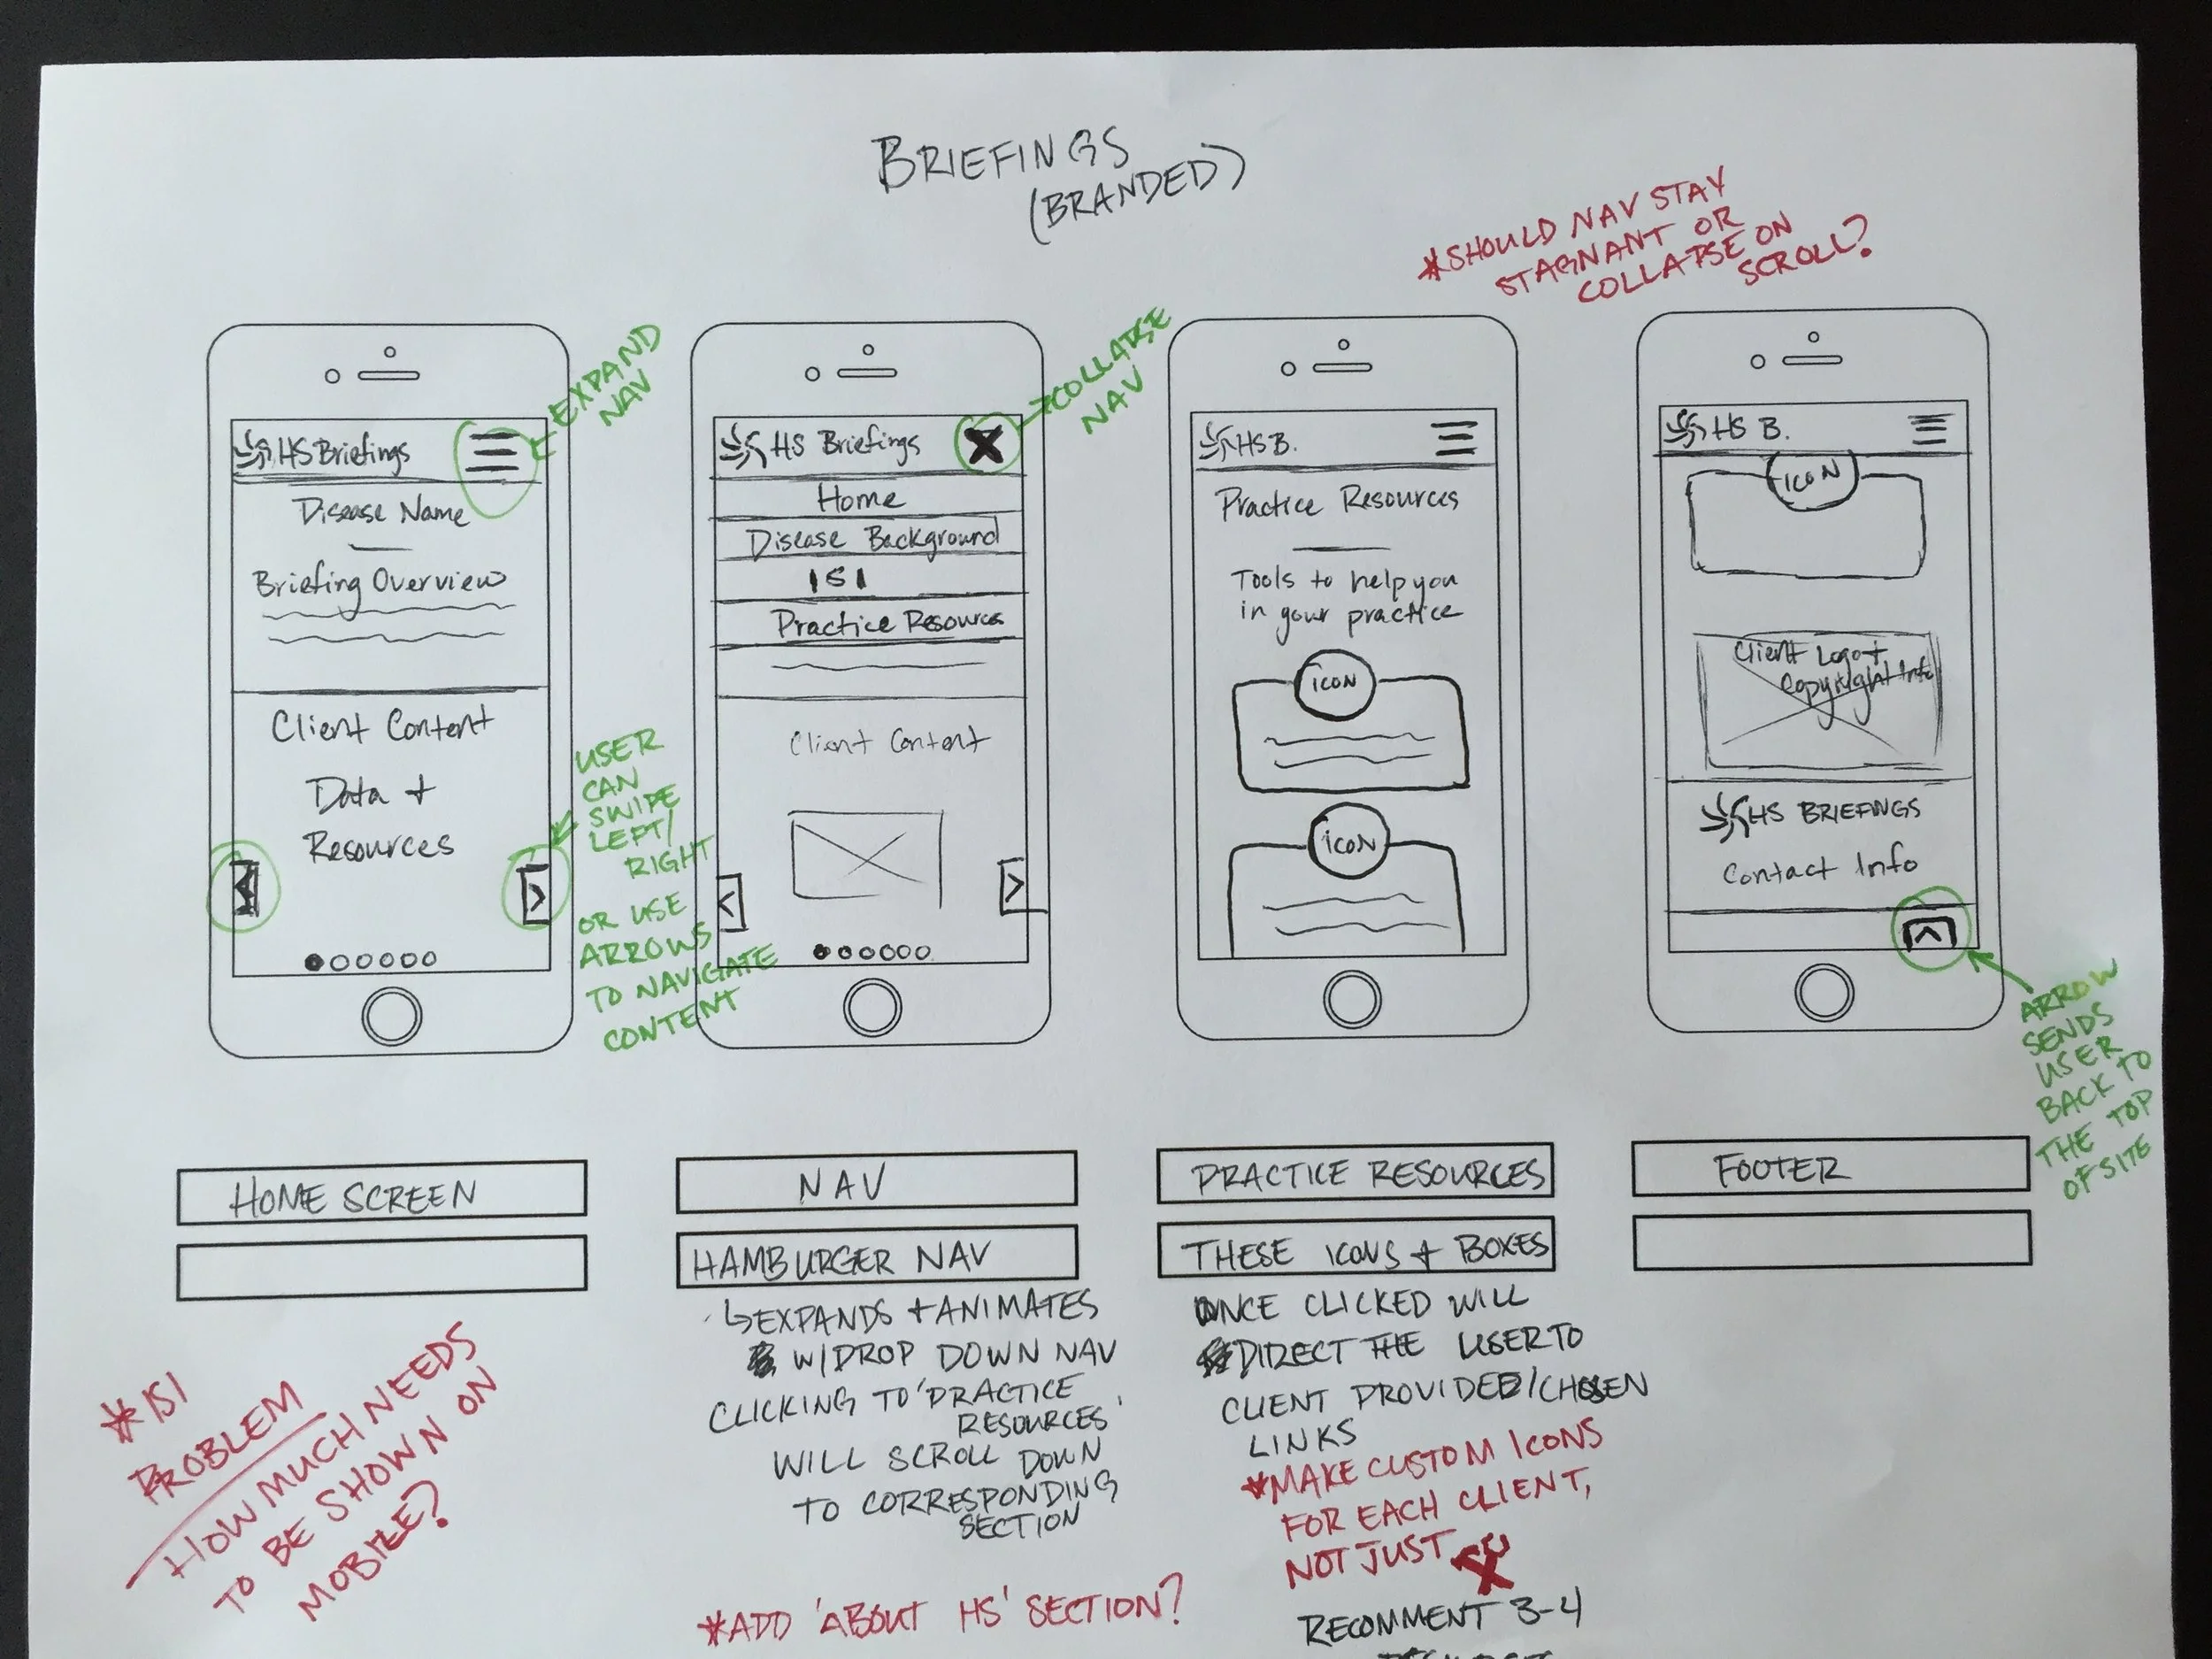 BRIEFINGS
(BRANDED)
*SHOULD NAV STAY
STAGNANT OR
COLLAPSE ON
SCROLL?
HS Briefings
Disease Name
Briefing Overview
Client Content
Data +
Resources
EXPAND
NAV
USER
CAN
SWIPE
LEFT/
RIGHT
OR USE
ARROWS
TO NAVIGATE
CONTENT
HS Briefings
X
Home
Disease Background
ISI
Practice Resources
Client Content
COLLAPSE
NAV
HS B.
Practice Resources
Tools to help you
in your practice
ICON
ICON
HS B.
ICON
Client Logo +
Copyright Info
HS BRIEFINGS
Contact Info
ARROW
SENDS
USER
BACK TO
THE TOP
OF SITE
HOME SCREEN
*ISI
PROBLEM
HOW MUCH NEEDS
TO BE SHOWN ON
MOBILE?
NAV
HAMBURGER NAV
↳EXPANDS + ANIMATES
W/DROP DOWN NAV
CLICKING TO 'PRACTICE
RESOURCES'
WILL SCROLL DOWN
TO CORRESPONDING
SECTION
*ADD 'ABOUT HS' SECTION?
PRACTICE RESOURCES
THESE ICONS + BOXES
ONCE CLICKED WILL
DIRECT THE USER TO
CLIENT PROVIDED/CHOSEN
LINKS
*MAKE CUSTOM ICONS
FOR EACH CLIENT,
NOT JUST
RECOMMENT 3-4
FOOTER